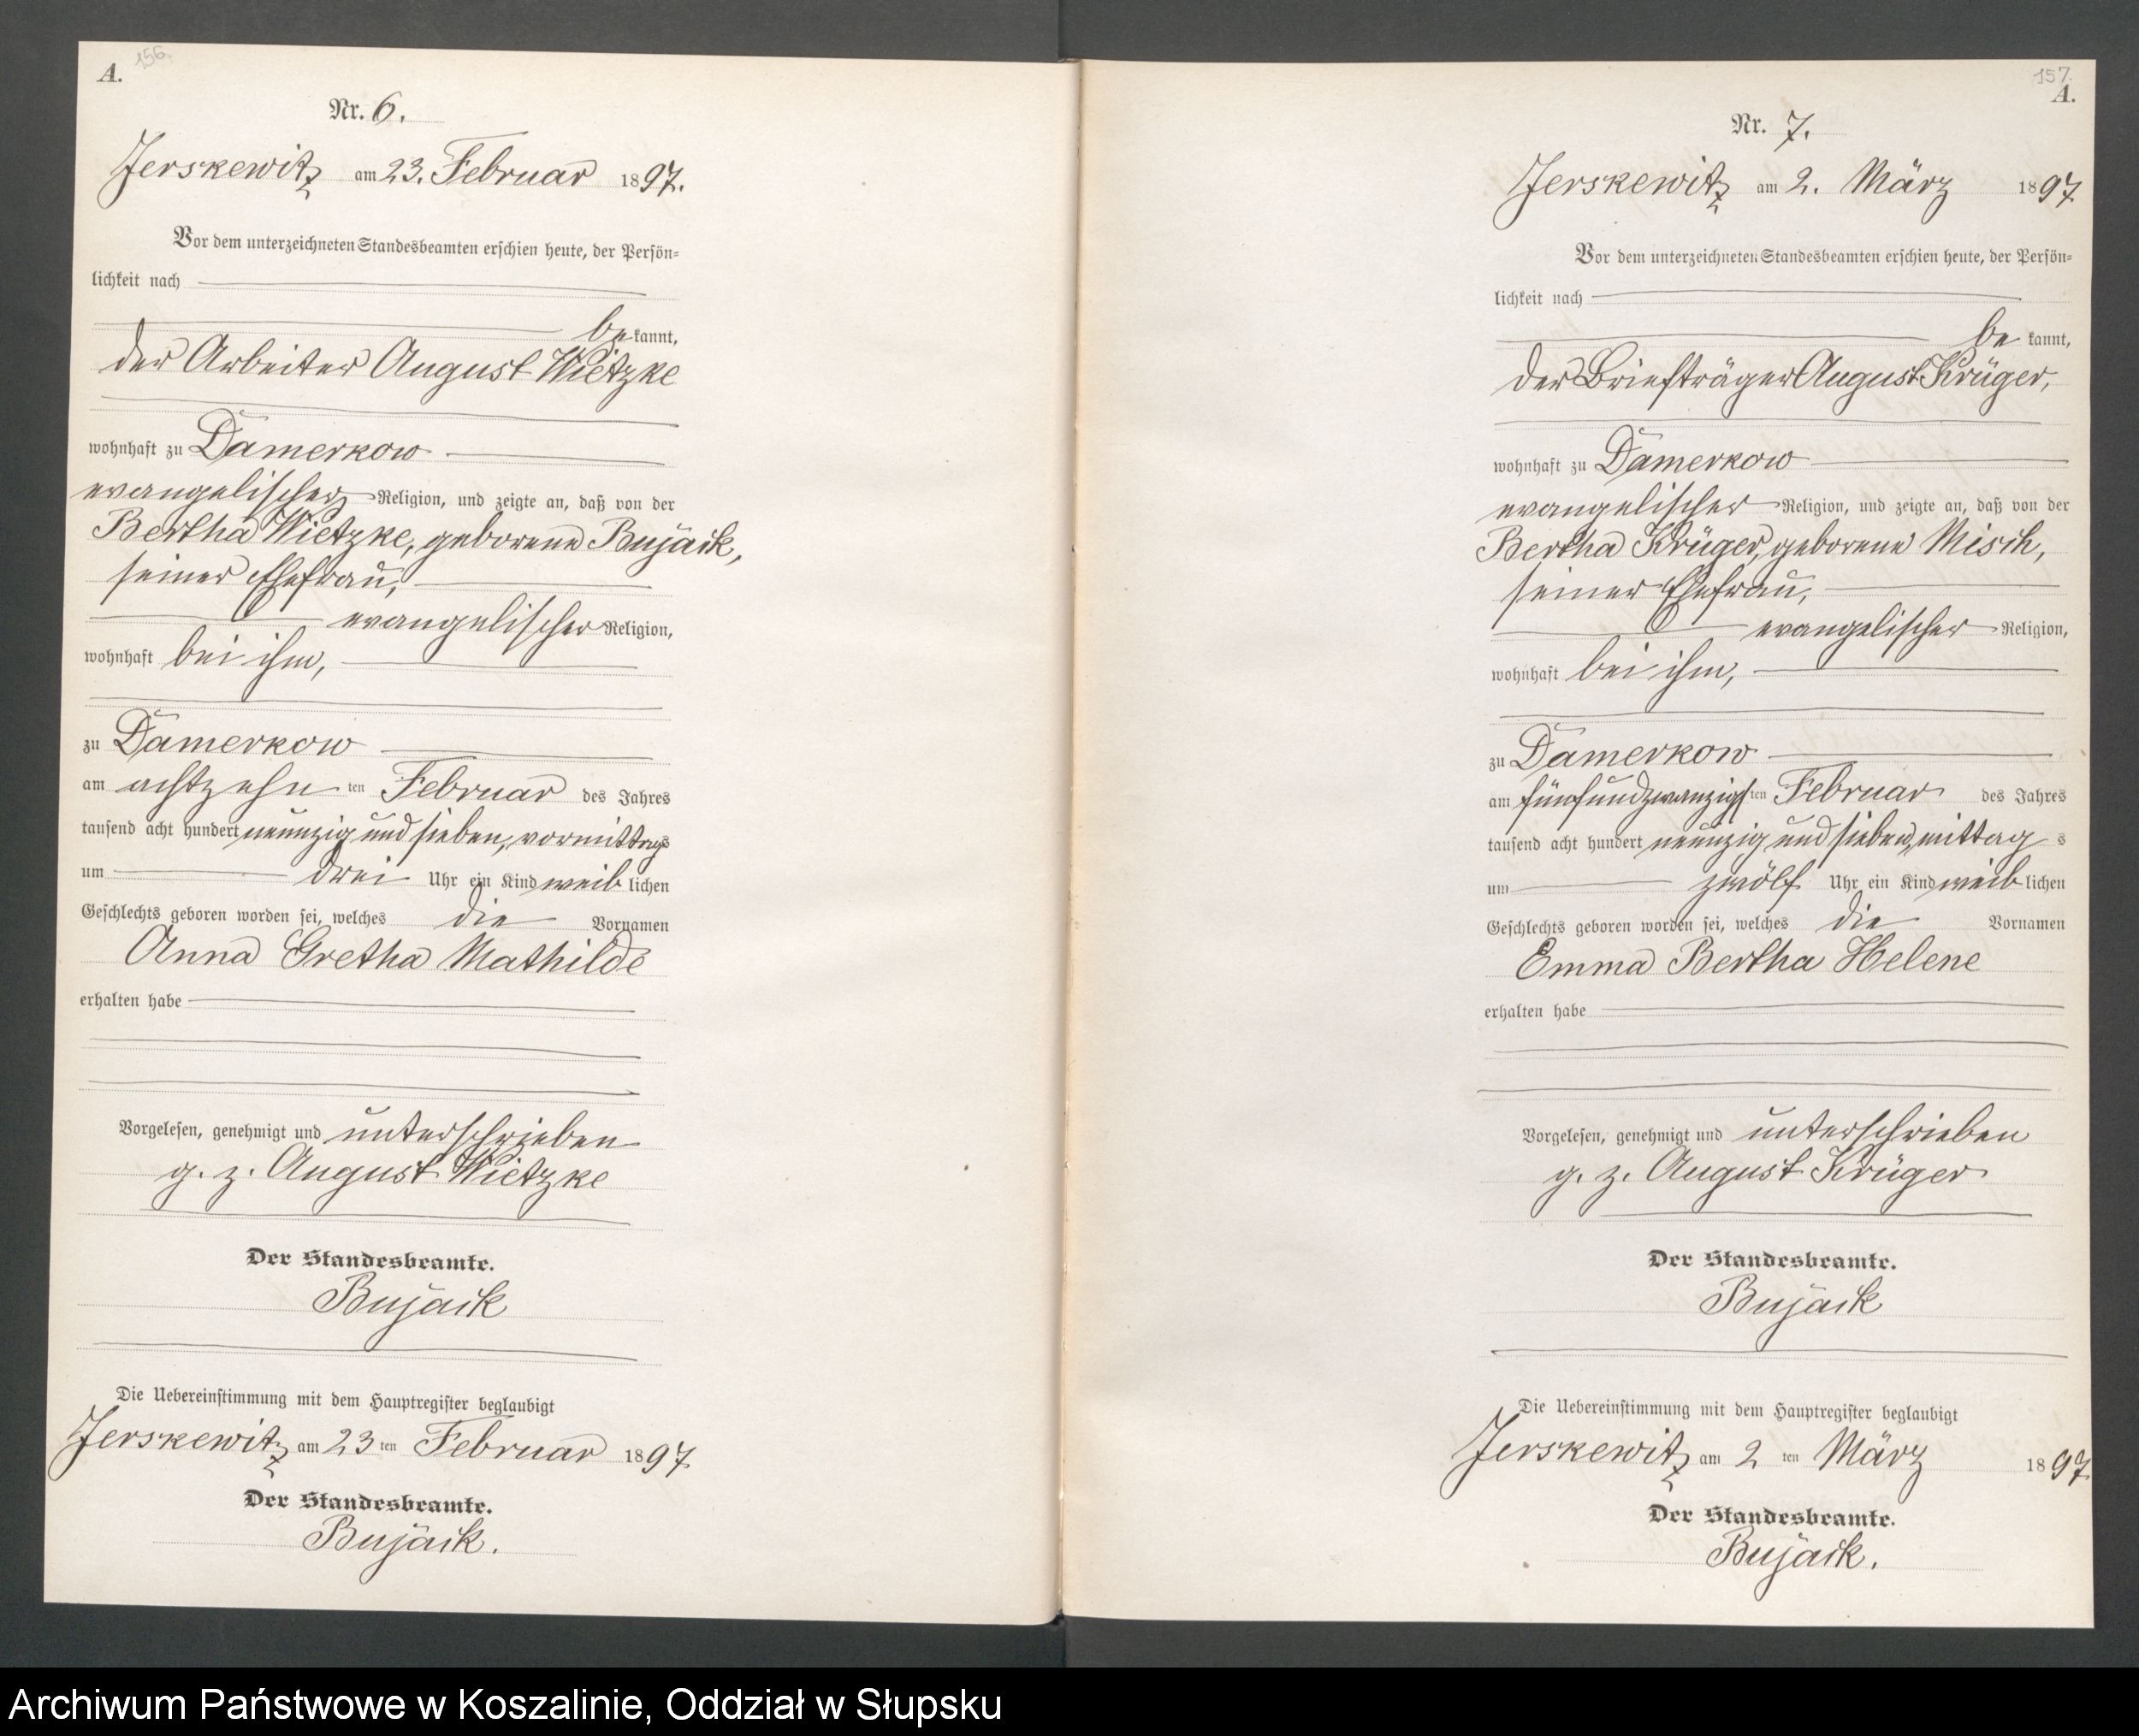 A. 156.
Nr. 6.
Jerskewitz am 23. Februar 1897.
Vor dem unterzeichneten Standesbeamten erschien heute, der Persön-
lichkeit nach
be kannt,
der Arbeiter August Wietzke
wohnhaft zu Damerkow
evangelischer Religion, und zeigte an, daß von der
Bertha Wietzke, geborene Bujack,
seiner Ehefrau,
evangelischer Religion,
wohnhaft bei ihm,
zu Damerkow
am achtzehn ten Februar des Jahres
tausend acht hundert neunzig und sieben, vormittags
um drei Uhr ein Kind weib lichen
Geschlechts geboren worden sei, welches die Vornamen
Anna Gretha Mathilde
erhalten habe
Vorgelesen, genehmigt und unterschrieben
g. z. August Wietzke
Der Standesbeamte.
Bujack
Die Uebereinstimmung mit dem Hauptregister beglaubigt
Jerskewitz am 23 ten Februar 1897
Der Standesbeamte.
Bujack.
157.
A.
Nr. 7.
Jerskewitz am 2. März 1897
Vor dem unterzeichneten Standesbeamten erschien heute, der Persön-
lichkeit nach
be kannt,
der Briefträger August Krüger,
wohnhaft zu Damerkow
evangelischer Religion, und zeigte an, daß von der
Bertha Krüger, geborene Misch,
seiner Ehefrau,
evangelischer Religion,
wohnhaft bei ihm,
zu Damerkow
am fünfundzwanzigs ten Februar des Jahres
tausend acht hundert neunzig und sieben, mittag s
um zwölf Uhr ein Kind weib lichen
Geschlechts geboren worden sei, welches die Vornamen
Emma Bertha Helene
erhalten habe
Vorgelesen, genehmigt und unterschrieben
g. z. August Krüger
Der Standesbeamte.
Bujack
Die Uebereinstimmung mit dem Hauptregister beglaubigt
Jerskewitz am 2 ten März 1897
Der Standesbeamte.
Bujack.
Archiwum Państwowe w Koszalinie, Oddział w Słupsku